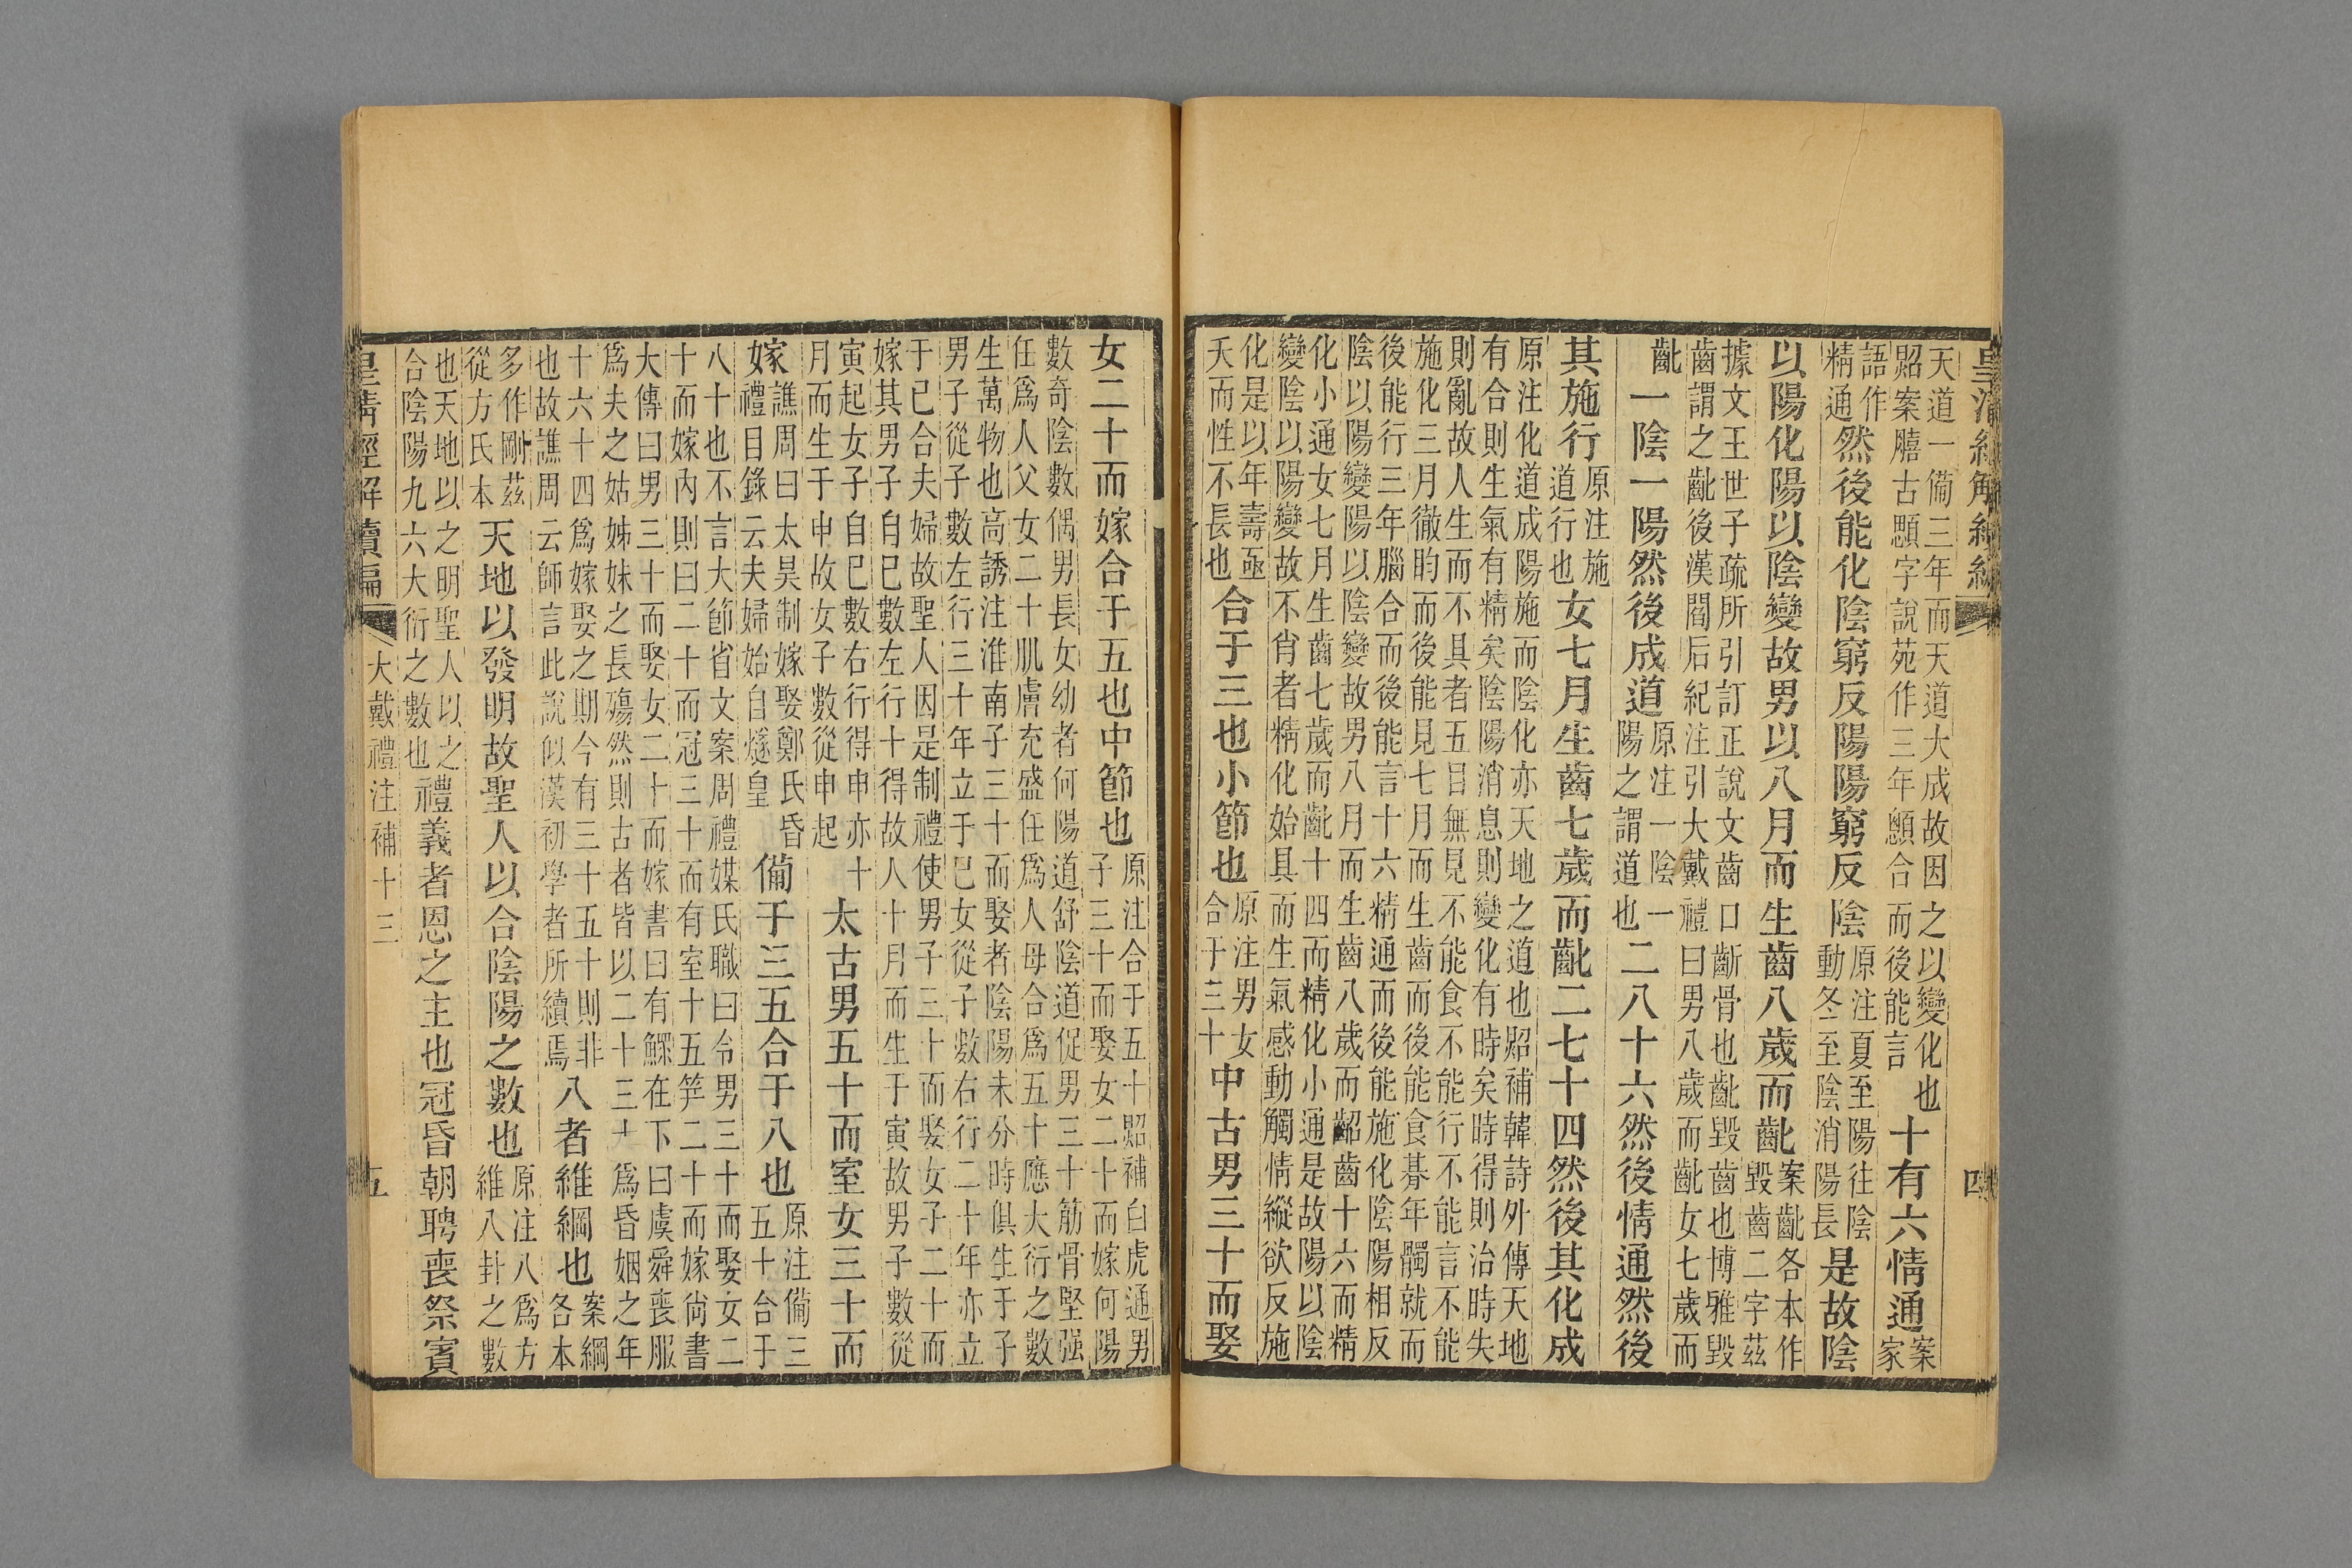 皇清經解續編
四
天道一僃三年而天道大成故因之以變化也
貂案膳古顋字說苑作三年顖合而後能言
十有六情通案家
語作精通然後能化陰窮反陽陽窮反陰原注夏至陽往陰動冬至陰消陽長是故陰
以陽化陽以陰變故男以八月而生齒八歲而齔案齔各本作毀齒二字茲
據文王世子疏所引訂正說文齒口齗骨也齔毀齒也博雅毀
齒謂之齔後漢閻后紀注引大戴禮曰男八歲而齔女七歲而
齔一陰一陽然後成道原注一陰一陽之謂道也二八十六然後情通然後
其施行原注施道行也女七月生齒七歲而齔二七十四然後其化成
原注化道成陽施而陰化亦天地之道也貂補韓詩外傳天地
有合則生氣有精矣陰陽消息則變化有時矣時得則治時失
則亂故人生而不具者五目無見不能食不能行不能言不能
施化三月徹盷而後能見七月而生齒而後能食朞年髑就而
後能行三年腦合而後能言十六精通而後能施化陰陽相反
陰以陽變陽以陰變故男八月而生齒八歲而齠齒十六而精
化小通女七月生齒七歲而齔十四而精化小通是故陽以陰
變陰以陽變故不肖者精化始具而生氣感動觸情縱欲反施
化是以年壽亟夭而性不長也合于三也小節也原注男女合于三十中古男三十而娶
女二十而嫁合于五也中節也原注合于五十貂補白虎通男子三十而娶女二十而嫁何陽
數奇陰數偶男長女幼者何陽道舒陰道促男三十筋骨堅强
任爲人父女二十肌膚充盛任爲人母合爲五十應大衍之數
生萬物也高誘注淮南子三十而娶者陰陽未分時俱生于子
男子從子數左行三十年立于巳女從子數右行二十年亦立
于巳合夫婦故聖人因是制禮使男子三十而娶女子二十而
嫁其男子自巳數左行十得故人十月而生于寅故男子數從
寅起女子自巳數右行得申亦十
月而生于申故女子數從申起
太古男五十而室女三十而
嫁譙周曰太昊制嫁娶鄭氏昏禮目錄云夫婦始自燧皇僃于三五合于八也原注僃三五十合于
八十也不言大節省文案周禮媒氏職曰令男三十而娶女二
十而嫁內則曰二十而冠三十而有室十五笄二十而嫁尙書
大傳曰男三十而娶女二十而嫁書曰有鰥在下曰虞舜喪服
爲夫之姑姊妹之長殤然則古者皆以二十三十爲昏姻之年
十六十四爲嫁娶之期今有三十五十則非
也故譙周云師言此說似漢初學者所續焉
八者維綱也案綱各本
多作剛茲從方氏本天地以發明故聖人以合陰陽之數也原注八爲方維八卦之數
也天地以之明聖人以之合陰陽九六大衍之數也禮義者恩之主也冠昏朝聘喪祭賓
皇清經解續編
大戴禮注補十三
五